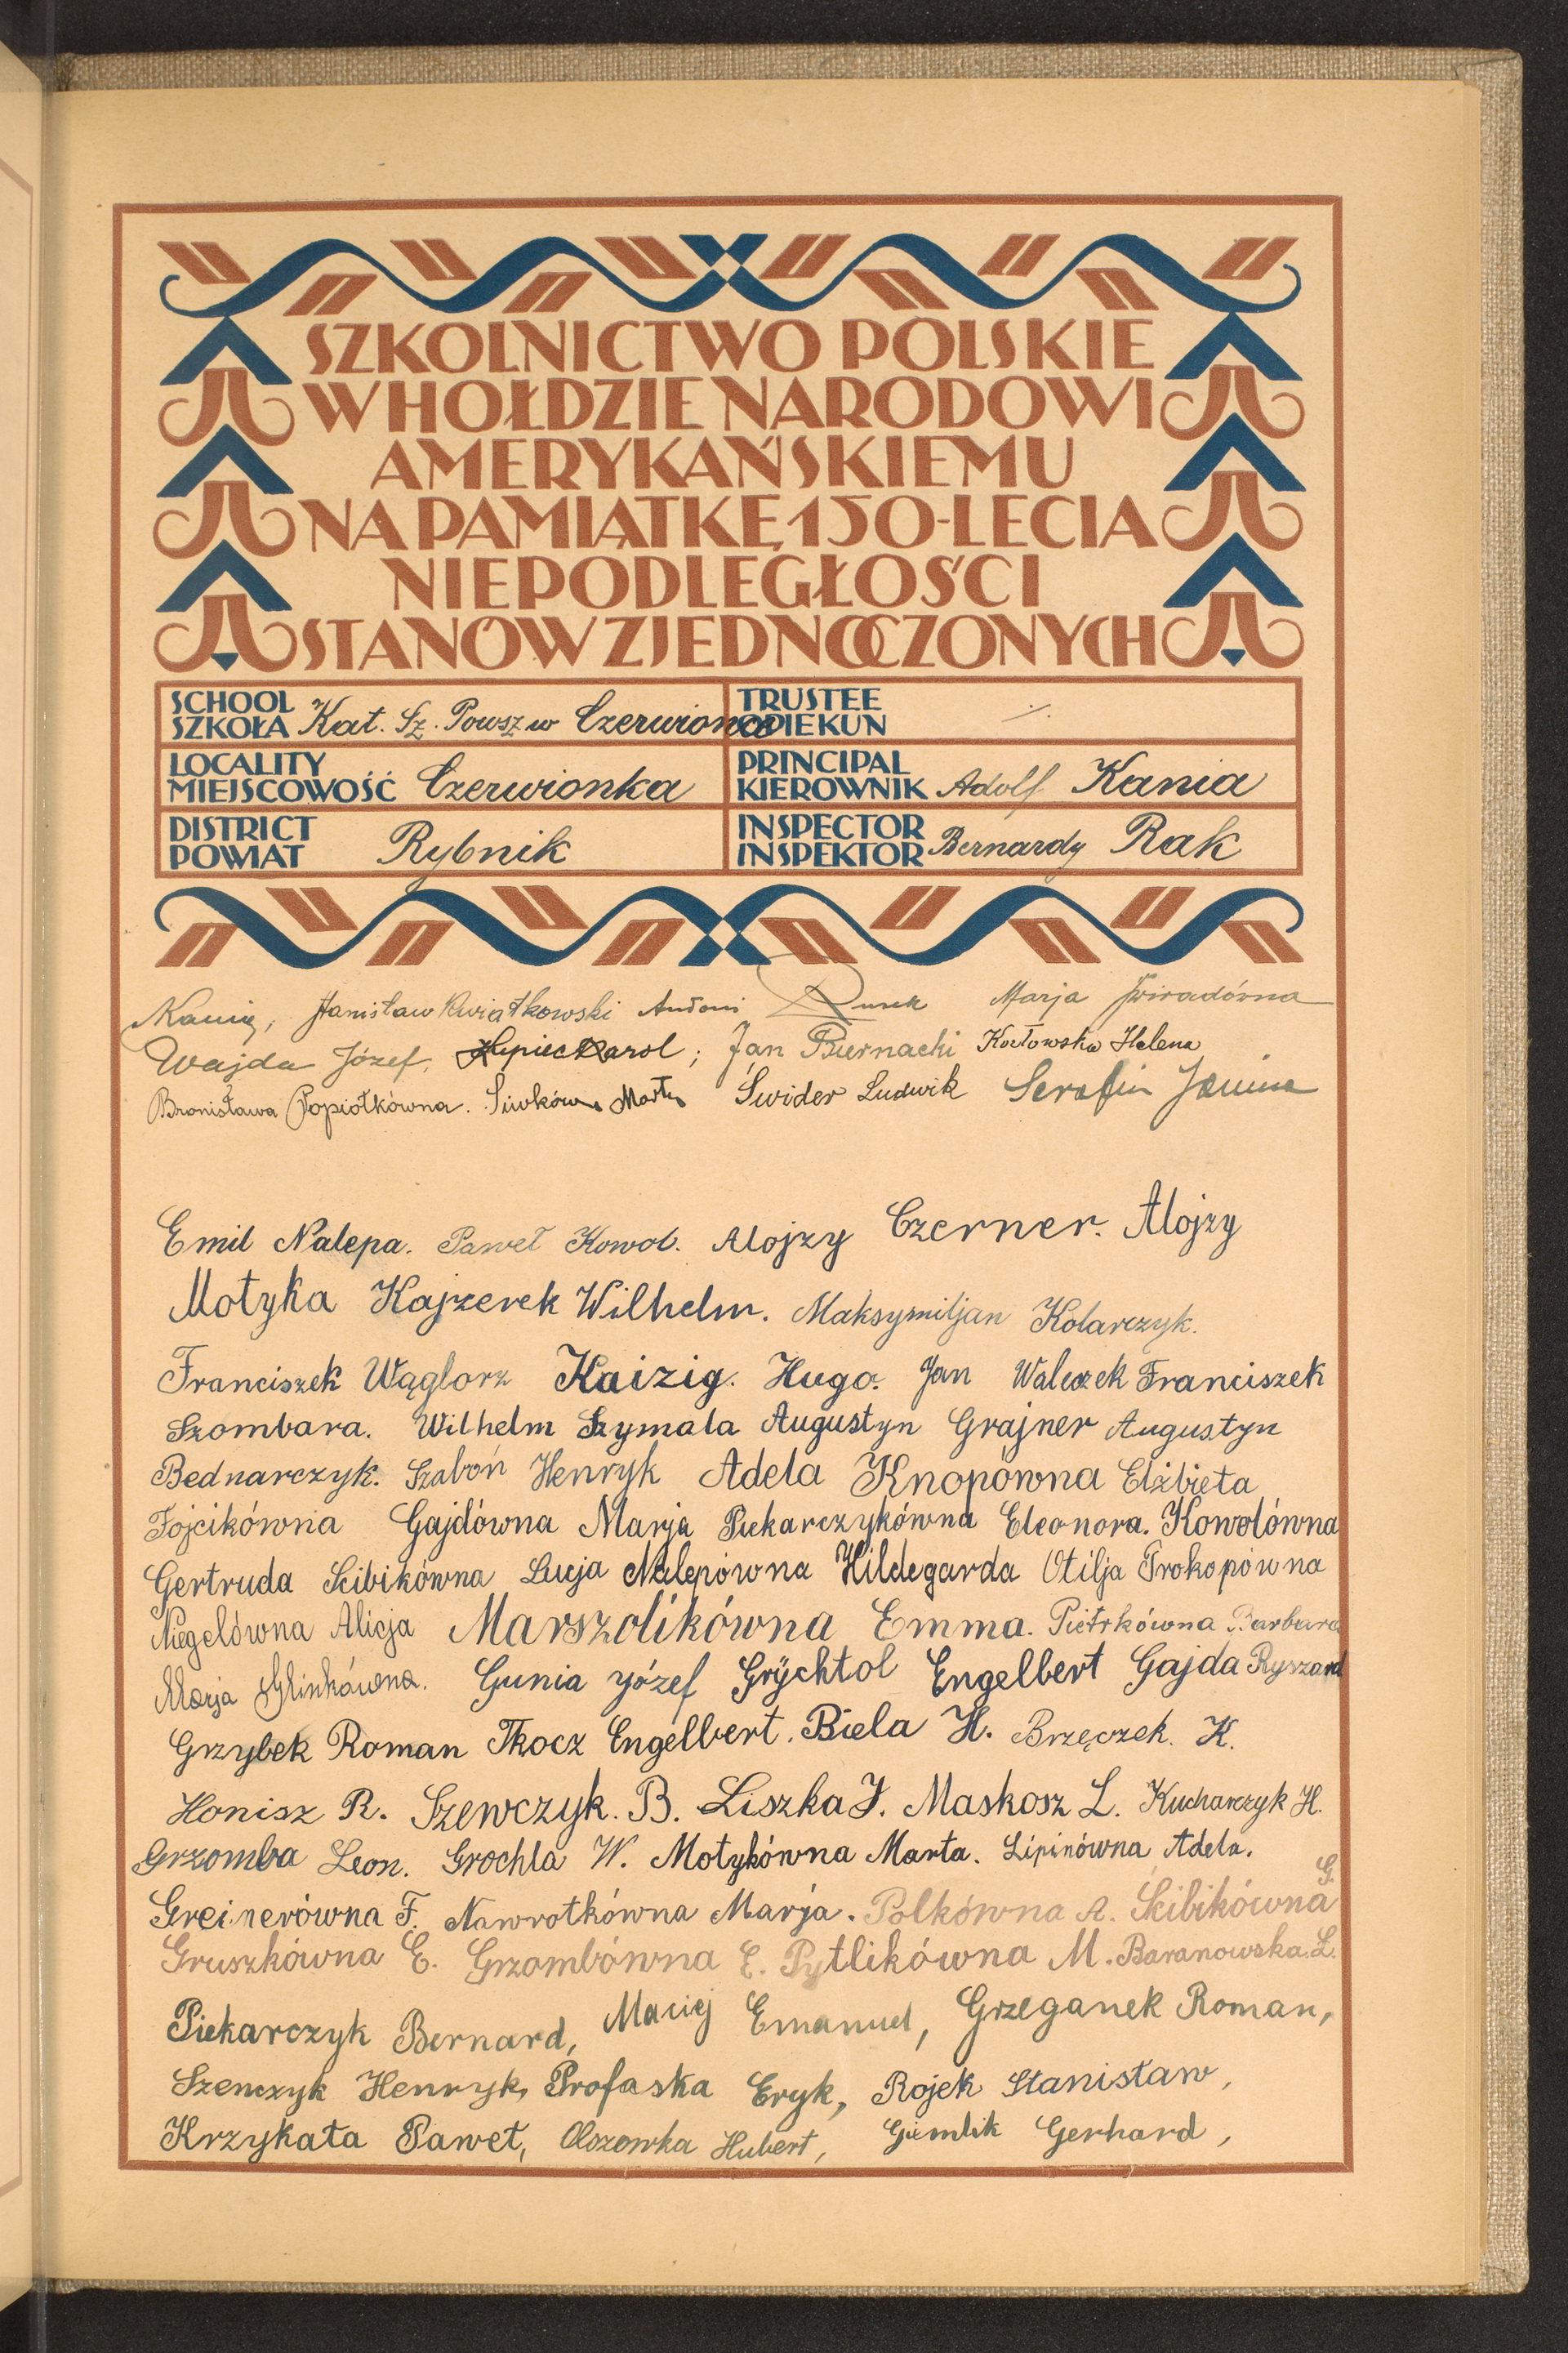 SZKOLNICTWO POLSKIE
W HOŁDZIE NARODOWI
AMERYKAŃSKIEMU
NA PAMIĄTKĘ 150-LECIA
NIEPODLEGŁOŚCI
STANÓW ZJEDNOCZONYCH
SCHOOL
SZKOŁA Kat. Sz. Powsz w Czerwionce
TRUSTEE
OPIEKUN
LOCALITY
MIEJSCOWOŚĆ Czerwionka
PRINCIPAL
KIEROWNIK Adolf Kania
DISTRICT
POWIAT Rybnik
INSPECTOR
INSPEKTOR Bernardy Rak
Stanisław Kwiatkowski Antoni Marja
Wajda Józef, Karol; Jan Biernacki Kozłowska Helena
Bronisława Popiółkówna. Siwkówna Marta Świder Ludwik Serafin Janina
Emil Nalepa. Paweł Kowol. Alojzy Czerner. Alojzy
Motyka Kajzerek Wilhelm. Maksymiljan Kolarczyk.
Franciszek Wąglorz Kaizig. Hugo. Jan Waleczek Franciszek
Szombara. Wilhelm Szymala Augustyn Grajner Augustyn
Bednarczyk. Szaboń Henryk Adela Knopówna Elżbieta
Fojcikówna Gajdówna Marja Piekarczykówna Eleonora. Kowolówna
Gertruda Scibikówna Łucja Nalepówna Hildegarda Otilja Prokopówna
Niegelówna Alicja Marszolikówna Emma. Pietrkówna Barbara
Marja Glinkówna. Gunia Józef Grÿchtol Engelbert Gajda Ryszard
Grzybek Roman Tkocz Engelbert. Biela H. Brzęczek. K.
Honisz R. Szewczyk. B. Liszka J. Maskosz L. Kucharczyk H.
Grzomba Leon. Grochla W. Motykówna Marta. Lipinówna Adela.
Greinerówna F. Nawrotkówna Marja. Polkówna A. Ścibikówna G.
Gruszkówna E. Grzombówna E. Pytlikówna M. Baranowska. L.
Piekarczyk Bernard, Maciej Emanuel, Grzeganek Roman,
Szenczyk Henryk, Profaska Eryk, Rojek Stanisław,
Krzykała Paweł, Olszowka Hubert, Giemlik Gerhard,